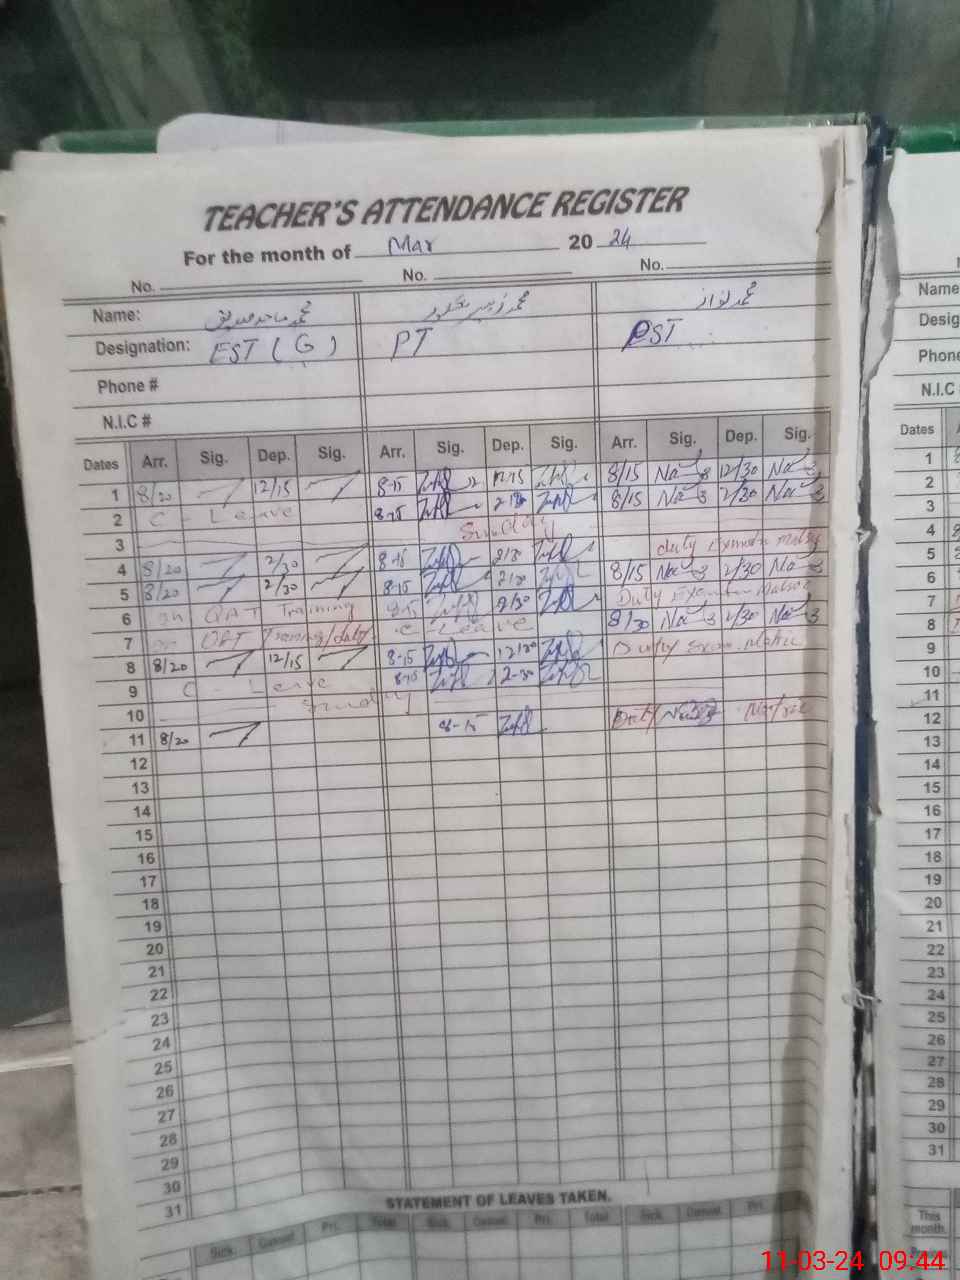 TEACHER'S ATTENDANCE REGISTER
For the month of Mar 20 24
No. No. No.
Name: محمد ساجد صدیق محمد زبیر محمد نواز Name
Designation: EST (G) PT PST Desig
Phone # Phone
N.I.C # N.I.C
Dates Arr. Sig. Dep. Sig. Arr. Sig. Dep. Sig. Arr. Sig. Dep. Sig. Dates
1 8/20 12/15 8-15 12-15 8/15 12/30 1
2 C - Leave 8-15 2-30 8/15 2/30 2
3 Sunday 3
4 8/20 2/30 8-15 2/30 duty 4
5 8/20 2/30 8-15 2/30 8/15 2/30 5
6 on QAT Training 8-15 2/30 Duty 6
7 on QAT Training/duty C Leave 8/30 2/30 7
8 8/20 12/15 8-15 12/30 Duty 8
9 C - Leave 8-15 2-30 9
10 Sunday 10
11 8/20 8-15 11
12 12
13 13
14 14
15 15
16 16
17 17
18 18
19 19
20 20
21 21
22 22
23 23
24 24
25 25
26 26
27 27
28 28
29 29
30 30
31 31
STATEMENT OF LEAVES TAKEN.
Sick. Casual. Pri. Total Sick. Casual. Pri. Total Sick. Casual. Pri. This month.
11-03-24 09:44